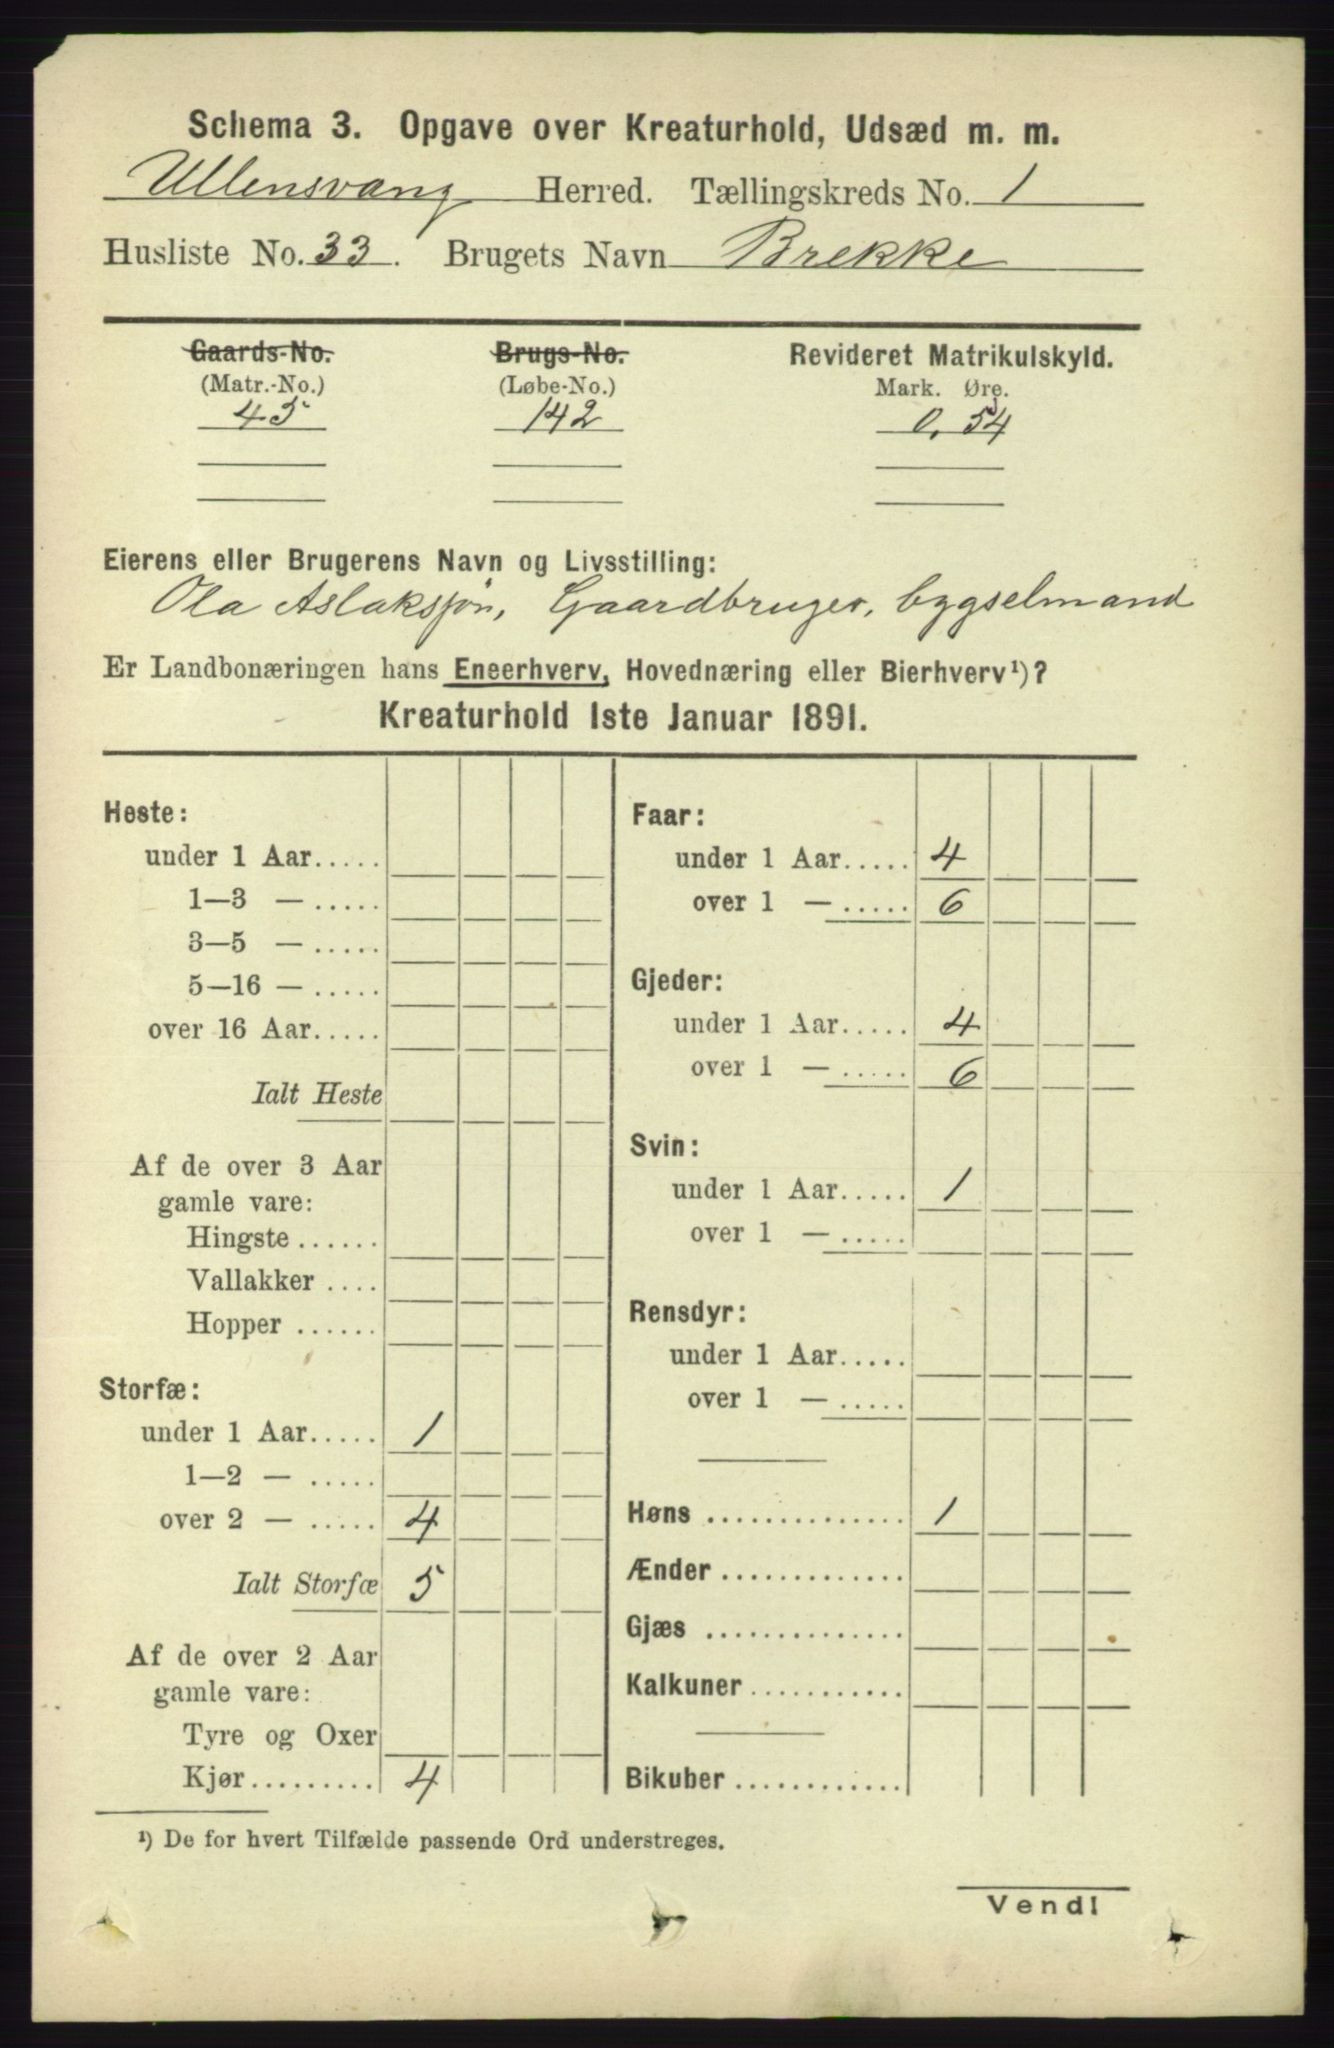 Schema 3. Opgave over Kreaturhold, Udsæd m. m.
Ullensvang Herred. Tællingskreds No. 1
Husliste No. 33. Brugets Navn Brekke
Gaards-No. Brugs-No. Revideret Matrikulskyld.
(Matr.-No.) (Løbe-No.) Mark. Øre.
45 142 0,54
Eierens eller Brugerens Navn og Livsstilling:
Ola Aslaksjøn, Gaardbruger, bygselmand
Er Landbonæringen hans Eneerhverv, Hovednæring eller Bierhverv¹)?
Kreaturhold 1ste Januar 1891.
Heste:
under 1 Aar.....
1—3 — .....
3—5 — .....
5—16 — .....
over 16 Aar.....
Ialt Heste
Af de over 3 Aar
gamle vare:
Hingste ......
Vallakker ....
Hopper ......
Storfæ:
under 1 Aar..... 1
1—2 — .....
over 2 — ..... 4
Ialt Storfæ 5
Af de over 2 Aar
gamle vare:
Tyre og Oxer
Kjør......... 4
Faar:
under 1 Aar..... 4
over 1 — ..... 6
Gjeder:
under 1 Aar..... 4
over 1 — ..... 6
Svin:
under 1 Aar..... 1
over 1 — .....
Rensdyr:
under 1 Aar.....
over 1 — .....
Høns .............. 1
Ænder .............
Gjæs ..............
Kalkuner...........
Bikuber ............
¹) De for hvert Tilfælde passende Ord understreges.
Vend!